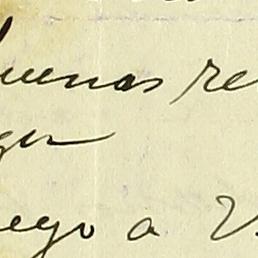 buenas re
gu
ego a V.